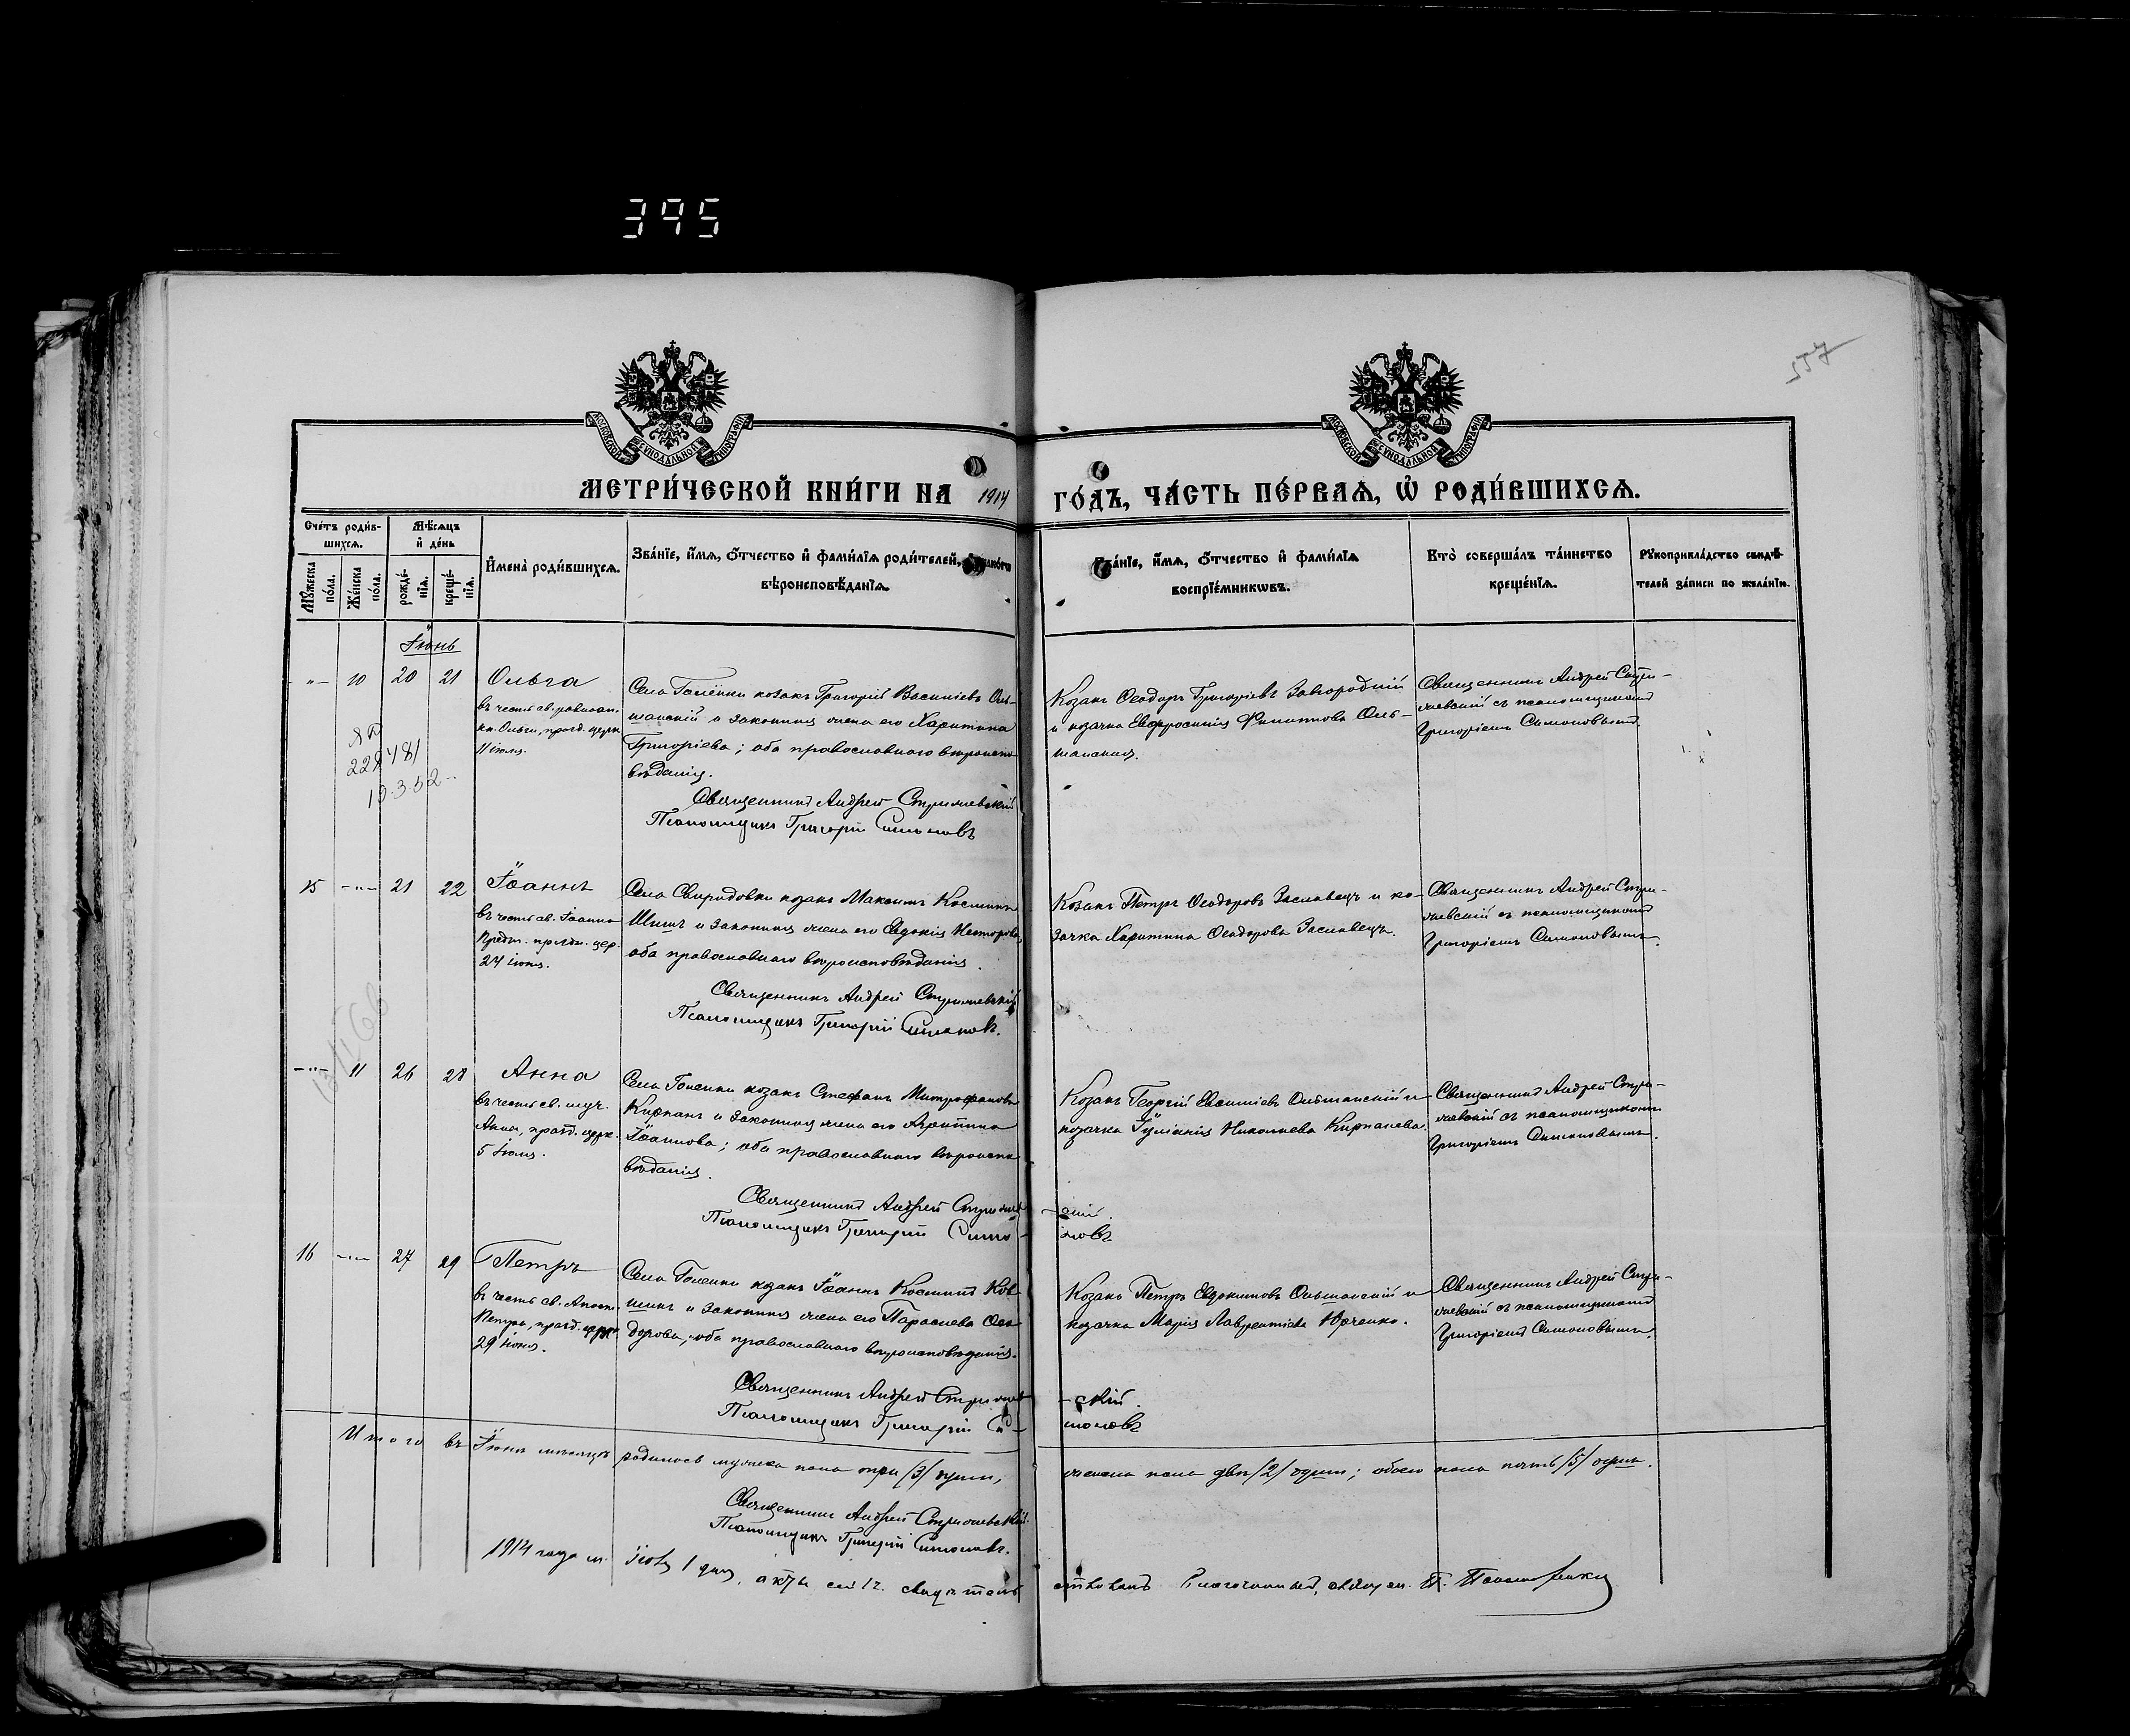 395
557
МОСКОВСКОЙ СѴНОДАЛЬНОЙ ТИПОГРАФІИ
МОСКОВСКОЙ СѴНОДАЛЬНОЙ ТИПОГРАФІИ
МЕТРИ́ЧЕСКОЙ КНИ́ГИ НА 1914 ГО́ДЪ, ЧА́СТЬ ПЕ́РВАѦ, Ѡ҆ РОДИ́ВШИХСѦ.
Сче́тъ роди́в-
шихсѧ.
Мѣ́сѧцъ
и҆ де́нь
Мꙋ́жеска по́ла.
Же́нска по́ла.
рожде́-
нїѧ.
креще́-
нїѧ.
И҆мена̀ роди́вшихсѧ.
Зва́нїе, и҆́мѧ, ѻ҆́тчество и҆ фами́лїѧ роди́телей,
вѣроисповѣ́данїѧ.
Зва́нїе, и҆́мѧ, ѻ҆́тчество и҆ фами́лїѧ
воспрїе́мникѡвъ.
Кто̀ соверша́лъ та́инство
креще́нїѧ.
Рꙋкоприкла́дство свидѣ́-
телей за́писи по жела́нїю.
Іюнь
-"- 10 20 21 Ольга
въ честь св. равноап.
кн. Ольги, празд. церк.
11 іюля.
Села Голенки козакъ Григорій Василіевъ Оль-
шанскій и законная жена его Харитина
Григоріева; оба православнаго вѣроиспо-
вѣданія.
Священникъ Андрей Стрижевскій
Псаломщикъ Григорій Симоновъ
Козакъ Ѳеодоръ Григоріевъ Завгородній
и козачка Евфросинія Филиппова Оль-
шанская.
Священникъ Андрей Стри-
жевскій съ псаломщикомъ
Григоріемъ Симоновымъ.
15 -"- 21 22 Іоаннъ
въ честь св. Іоанна
Предт. празд. цер.
24 іюня.
Села Свиридовки козакъ Максимъ Косминъ
и законная жена его Евдокія Несторова,
оба православнаго вѣроисповѣданія.
Священникъ Андрей Стрижевскій
Псаломщикъ Григорій Симоновъ.
Козакъ Петръ Ѳеодоровъ Заславецъ и ко-
зачка Харитина Ѳеодорова Заславецъ.
Священникъ Андрей Стри-
жевскій съ псаломщикомъ
Григоріемъ Симоновымъ.
-"- 11 26 28 Анна
въ честь св. муч.
Анны, празд. церк.
5 іюля.
Села Голенки козакъ Стефанъ Митрофановъ
Кирпань и законная жена его Агрипина
Іоаннова; оба православнаго вѣроиспо-
вѣданія.
Священникъ Андрей Стрижев-
скій.
Псаломщикъ Григорій Симо-
новъ
Козакъ Георгій Евсиміевъ Ольшанскій и
козачка Іуліанія Николаева Кирпанева.
Священникъ Андрей Стри-
жевскій съ псаломщикомъ
Григоріемъ Симоновымъ.
16 -"- 27 29 Петръ
въ честь св. Апост.
Петра, празд. церк.
29 іюня.
Села Голенки козакъ Іоаннъ Космин Ков-
шикъ и законная жена его Параскева Ѳео-
дорова; оба православнаго вѣроисповѣданія.
Священникъ Андрей Стрижев-
скій.
Псаломщикъ Григорій Си-
моновъ
Козакъ Петръ Евдокимовъ Ольшанскій и
козачка Марія Лаврентіева Юрченко.
Священникъ Андрей Стри-
жевскій съ псаломщикомъ
Григоріемъ Симоновымъ.
Итого въ Іюнѣ мѣсяцѣ родилось мужска пола три /3/ души, женска пола двѣ /2/ души; обоего пола пять /5/ душъ.
Священникъ Андрей Стрижевскій.
Псаломщикъ Григорій Симоновъ.
1914 года м. Іюля 1 дня, акты сіи свидѣтель-
ствовалъ Благочинный, священ.